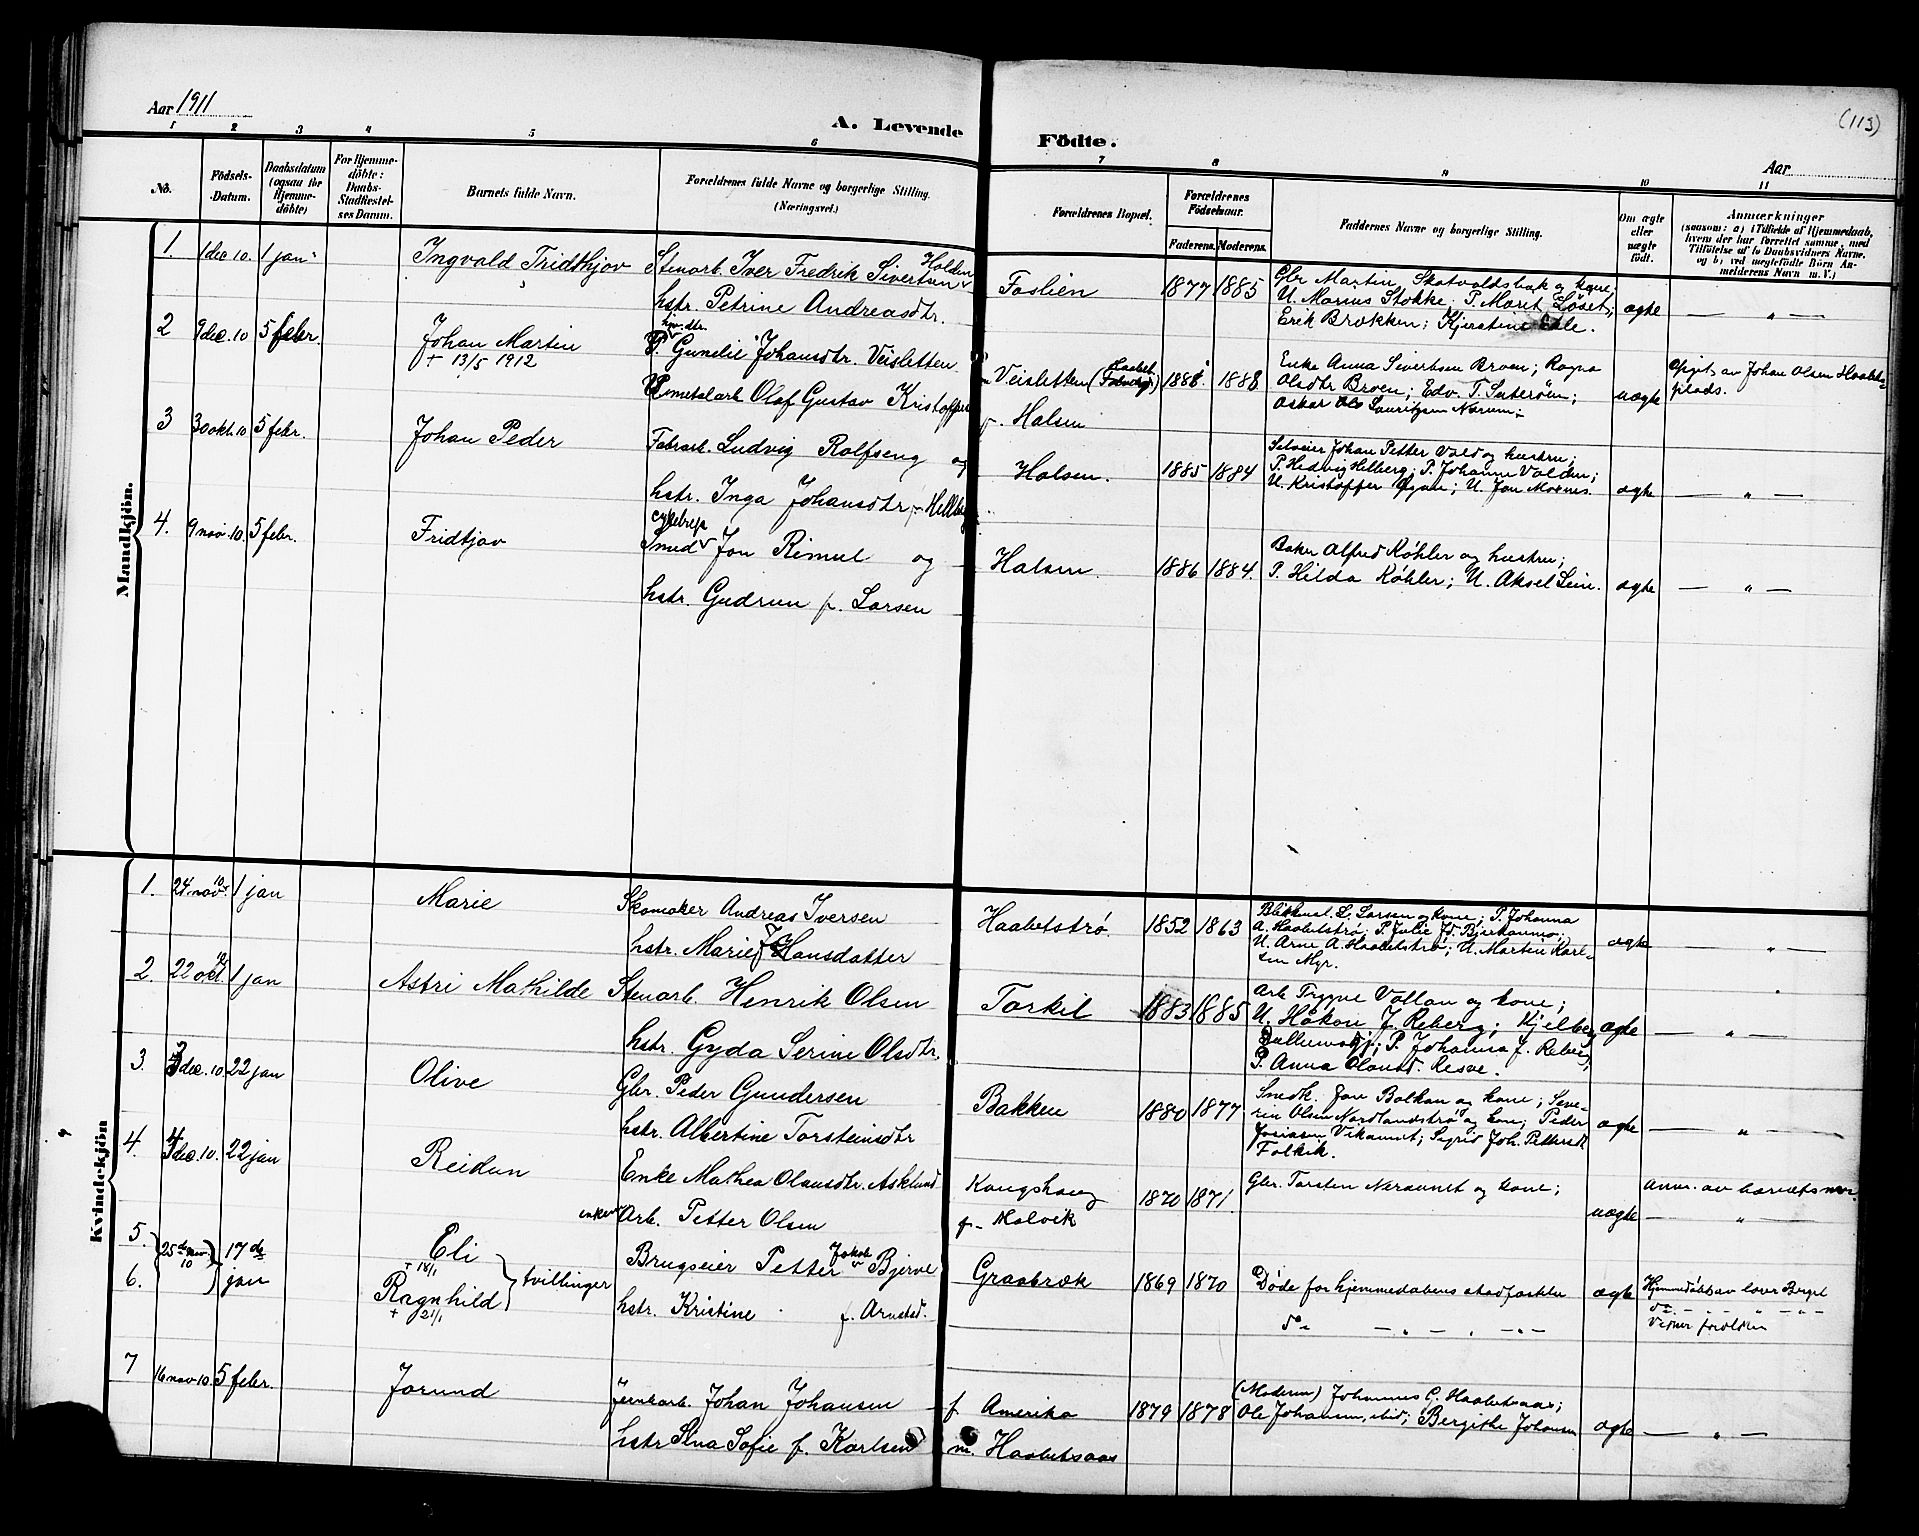 Aar 1911
A. Levende
Födte.
(113)
Aar
1 2 3 4 5 6 7 8 9 10 11
No.
Födsels-
Datum.
Daabsdatum
(ogsaa for
Hjemme-
döbte)
For Hjemme-
döbte:
Daabs-
Stadfæstel-
ses Datum.
Barnets fulde Navn.
Forældrenes fulde Navne og borgerlige Stilling.
(Næringsvei.)
Forældrenes Bopæl.
Forældrenes
Födselsaar.
Faderens. Moderens.
Faddernes Navne og borgerlig Stilling.
Om ægte
eller
uægte
födt.
Anmærkninger
(saasom: a) i Tilfælde af Hjemmedaab,
hvem der har forrettet samme, med
Tilföielse af to Daabsvidners Navne,
og b) ved uægtefödte Börn An-
melderens Navn m. V.)
Mandkjön.
1. 1 dec 10. 1 jan.
Ingvald Fridthjov
Stenarb. Iver Fredrik Sivertsen Holden
hstr. Petrine Andreasdtr.
Faslien 1877 1885
Gbr Martin Skatvoldsbak og kone;
U. Marius Stokke; P. Marit Løset;
Erik Brækken; Kjerstine
ægte — " —
2 9 dec. 10 5 febr.
Johan Martin
+ 13/5 1912
P. Gunelie Johansdtr. Veisletten
Olaf Gustav Kristoffer
Veisletten
f. Halsen
1888 1888
Enke Anna Sivertsen Broen; Ragna
Olsdtr Broen; Edv. T. Suterøen;
Oskar Lauritzsen Nærum;
uægte
Opgit av Johan Olsen Haabets-
plads.
3 30 okt. 10 5 febr.
Johan Peder
Fabrarb. Ludvig Rolfseng og
hstr. Inga Johansdtr f. Hellberg
Halsen. 1885 1884
Selveier Johan Petter Vold og hustru;
P. Hedvig Helberg; P. Johanne Volden;
U. Kristoffer Øyan; U. Jon Moønes.
ægte — " —
4. 9 nov. 10. 5 febr.
Fridtjov
cykelrep
Smed Jon Rimul og
hstr. Gudrun f. Larsen
Halsen. 1886 1884.
Baker Alfred Køhler og hustru;
P. Hilda Køhler; U. Aksel Lein.
ægte — " —
Kvindekjön
1. 24. nov 10. 1 jan
Marie
Skomaker Andreas Iversen
hstr. Marie Hansdatter
Haabetstrø. 1852 1863
Blikkensl. L. Larsen og kone; P. Johanna
A. Haabetstrø; P. Julie Jd. Bjerkanmo;
U. Arne A. Haabetstrø; U. Martin Karl-
sen Myr.
ægte — " —
2. 22 okt 10 1 jan
Astri Mathilde
Stenarb. Henrik Olsen
hstr. Gyda Serine Olsdtr.
Torkil 1883 1885
Arb Trygve Vollan og kone;
U. Håkon J. Reberg; Kjelberg
P. Johanna J. Reberg;
P. Anna Olausd. Resve.
ægte — " —
3. 3 dec. 10 22 jan
Olive
Gbr. Peder Gundersen
hstr. Albertine Torsteinsdtr
Bakken 1880 1877
Smedk. Jon Balkan og kone; Seve-
rin Olsen Nordlandstrø og kone; Peder
Josiasen Vikannet; Sigrid Joh. Pettersdtr
ægte — " —
4. 4 dec. 10. 22 jan
Reidun
Enke Mathea Olausdtr. Asklund
enkem. Arb. Petter Olsen
Kongshaug
f. Malvik
1870 1871.
Gbr. Torsten Næraunet og kone;
uægte
anm. av barnets mor.
— " —
5. 25de nov. 10 17de jan
6.
Eli
+ 18/1
Ragnhild
+ 21/1
tvillinger
Brugseier Petter Jakob Bjerve
hstr. Kristine f. Arnstad.
Graabræk 1869 1870
Døde før hjemmedaabens stadfæstelse
do — " — " —
ægte
Hjemmedøbt av lover Berget
do — " — " —
Vidner forældre
7 16 nov 10. 5 febr.
Jorund
Jernbarb. Johan Johansen
hstr Sina Sofie f. Karlsen
f. Amerika
m. Haabetsaas
1879 1878
(Moderen) Johannes C. Haabetsaas;
Ole Johansen, ibid; Bergithe Johansen
ægte — " —